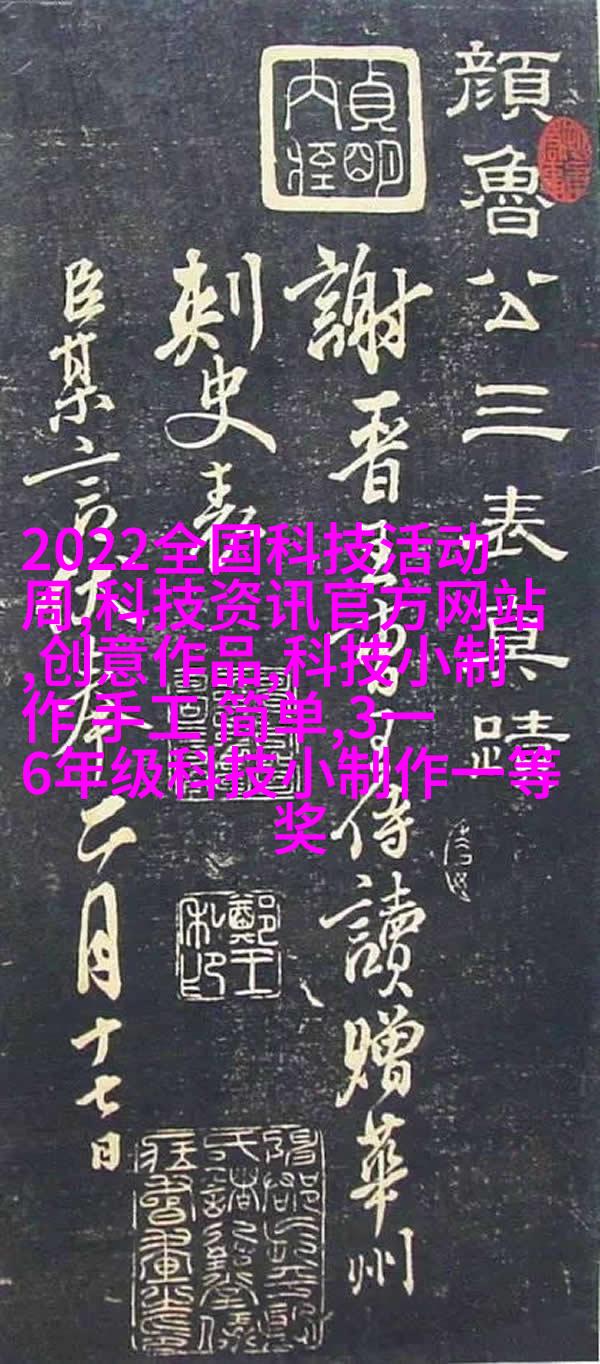 顏魯公三表真蹟
謝晉王曹王侍讀贈華州
刺史表
臣某言伏奉二月十七日
2022全国科技活动
周,科技资讯官方网站
,创意作品,科技小制
作 手工 简单,3一
6年级科技小制作一等
奖